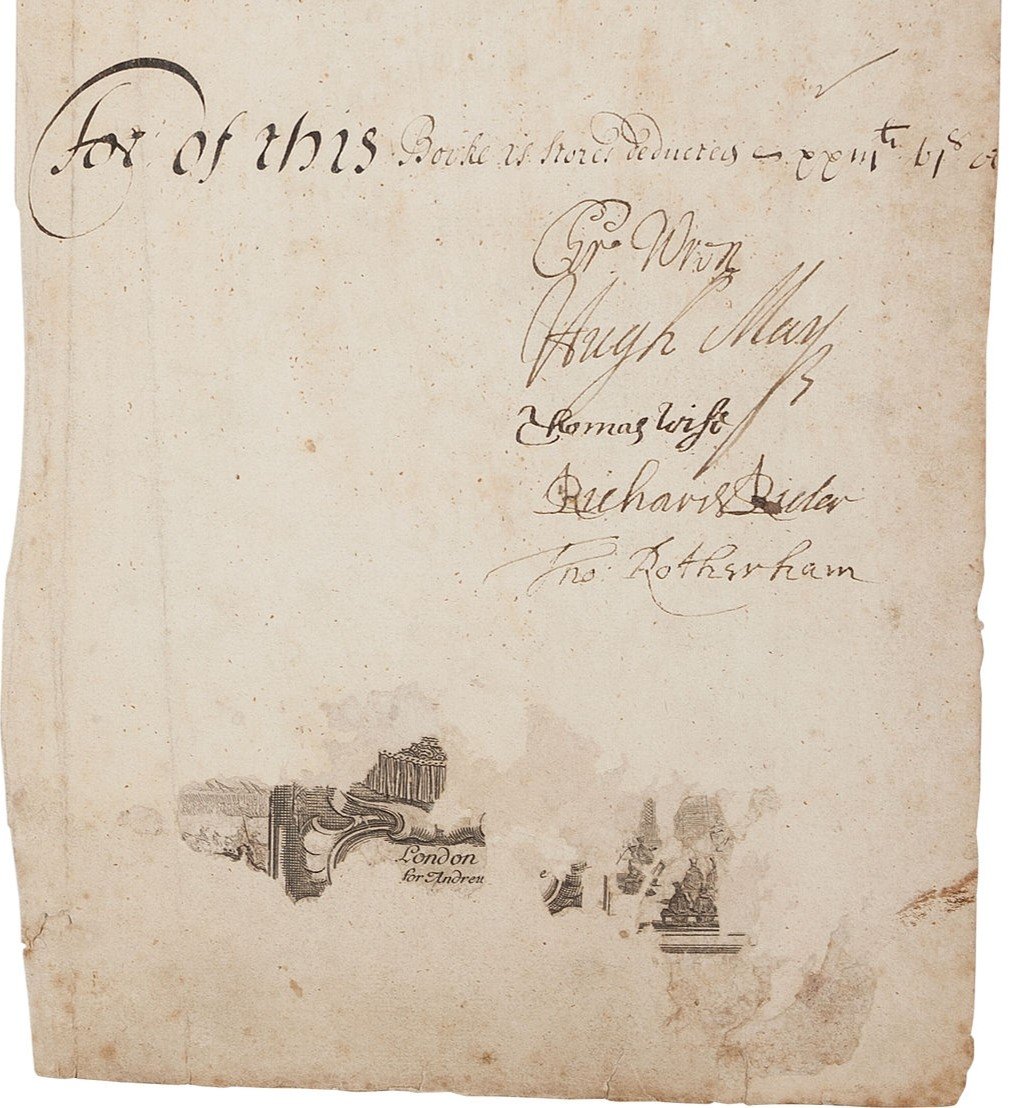 Tot of this Booke is stores deducted xxiii li vi s
Chr. Wren
Hugh May
Thomas Wise
Richard Rider
Tho: Rotherham
London
for Andrew